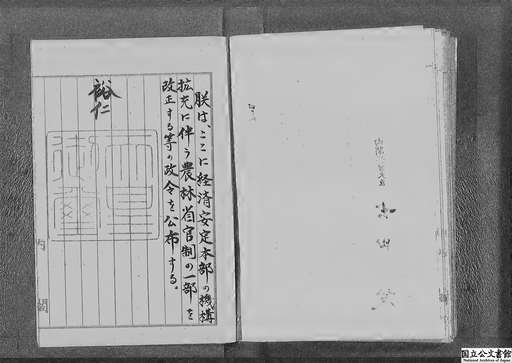 朕は、ここに経済安定本部の機構
拡充に伴う農林省官制の一部を
改正する等の政令を公布する。
裕仁
天皇
御璽
内閣
国立公文書館
National Archives of Japan